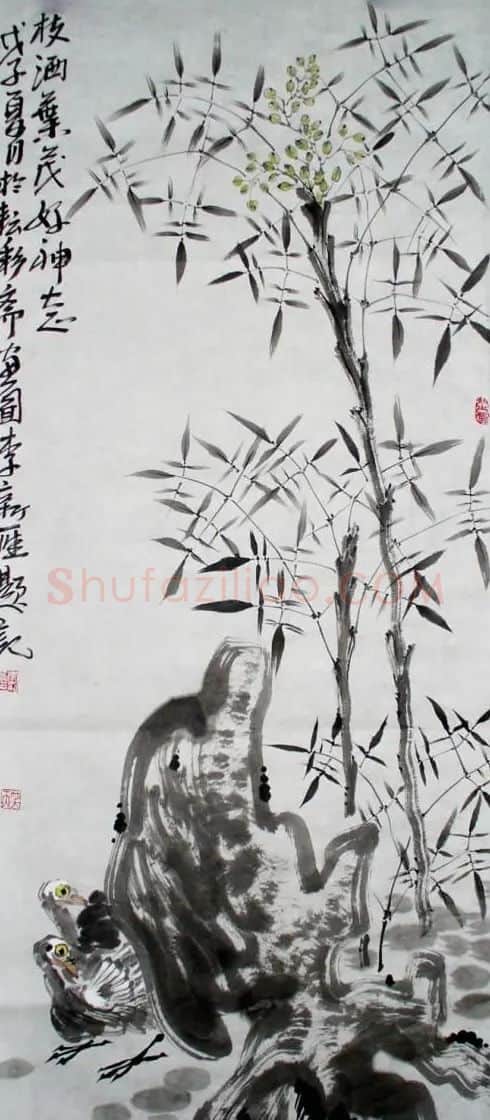 枝洒葉茂好神态
戊子夏月於耘彩斋画圖李新雁題記
Shufaziliao.COM